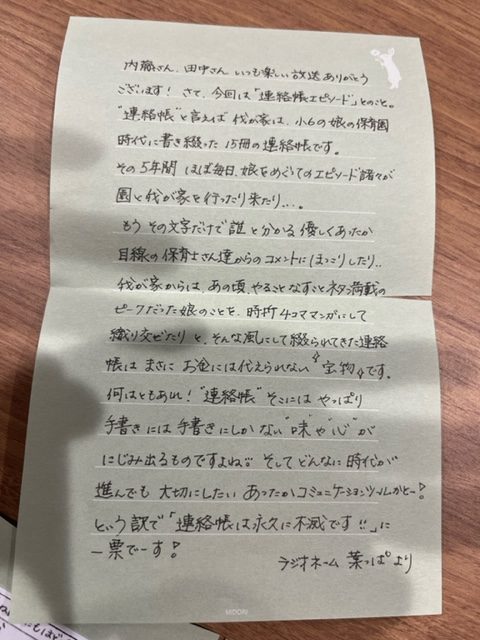 内藤さん、田中さん いつも楽しい放送ありがとう
ございます! さて、今回は「連絡帳エピソード」とのこと。
"連絡帳"と言えば 我が家は、小6の娘の保育園
時代に書き綴った 15冊の連絡帳です。
その5年間 ほぼ毎日、娘をめぐってのエピソード諸々が
園と我が家を行ったり来たり…。
もう その文字だけで 誰と分かる 優しくあったか
目線の保育士さん達からのコメントに ほっこりしたり‥
我が家からは、あの頃、やることなすことネタ満載の
ピークだった娘のことを、時折4コママンガにして
織り交ぜたり と、そんな風にして綴られてきた連絡
帳は まさに お金には代えられない "宝物"です。
何はともあれ! "連絡帳" そこには やっぱり
手書きには 手書きにしかない "味"や"心"が
にじみ出るものですよね。そして どんなに 時代が
進んでも 大切にしたい あったかコミュニケーションツールかと―!
という訳で「連絡帳は永久に不滅です!!」に
一票でーす!
ラジオネーム 葉っぱ より
MIDORI